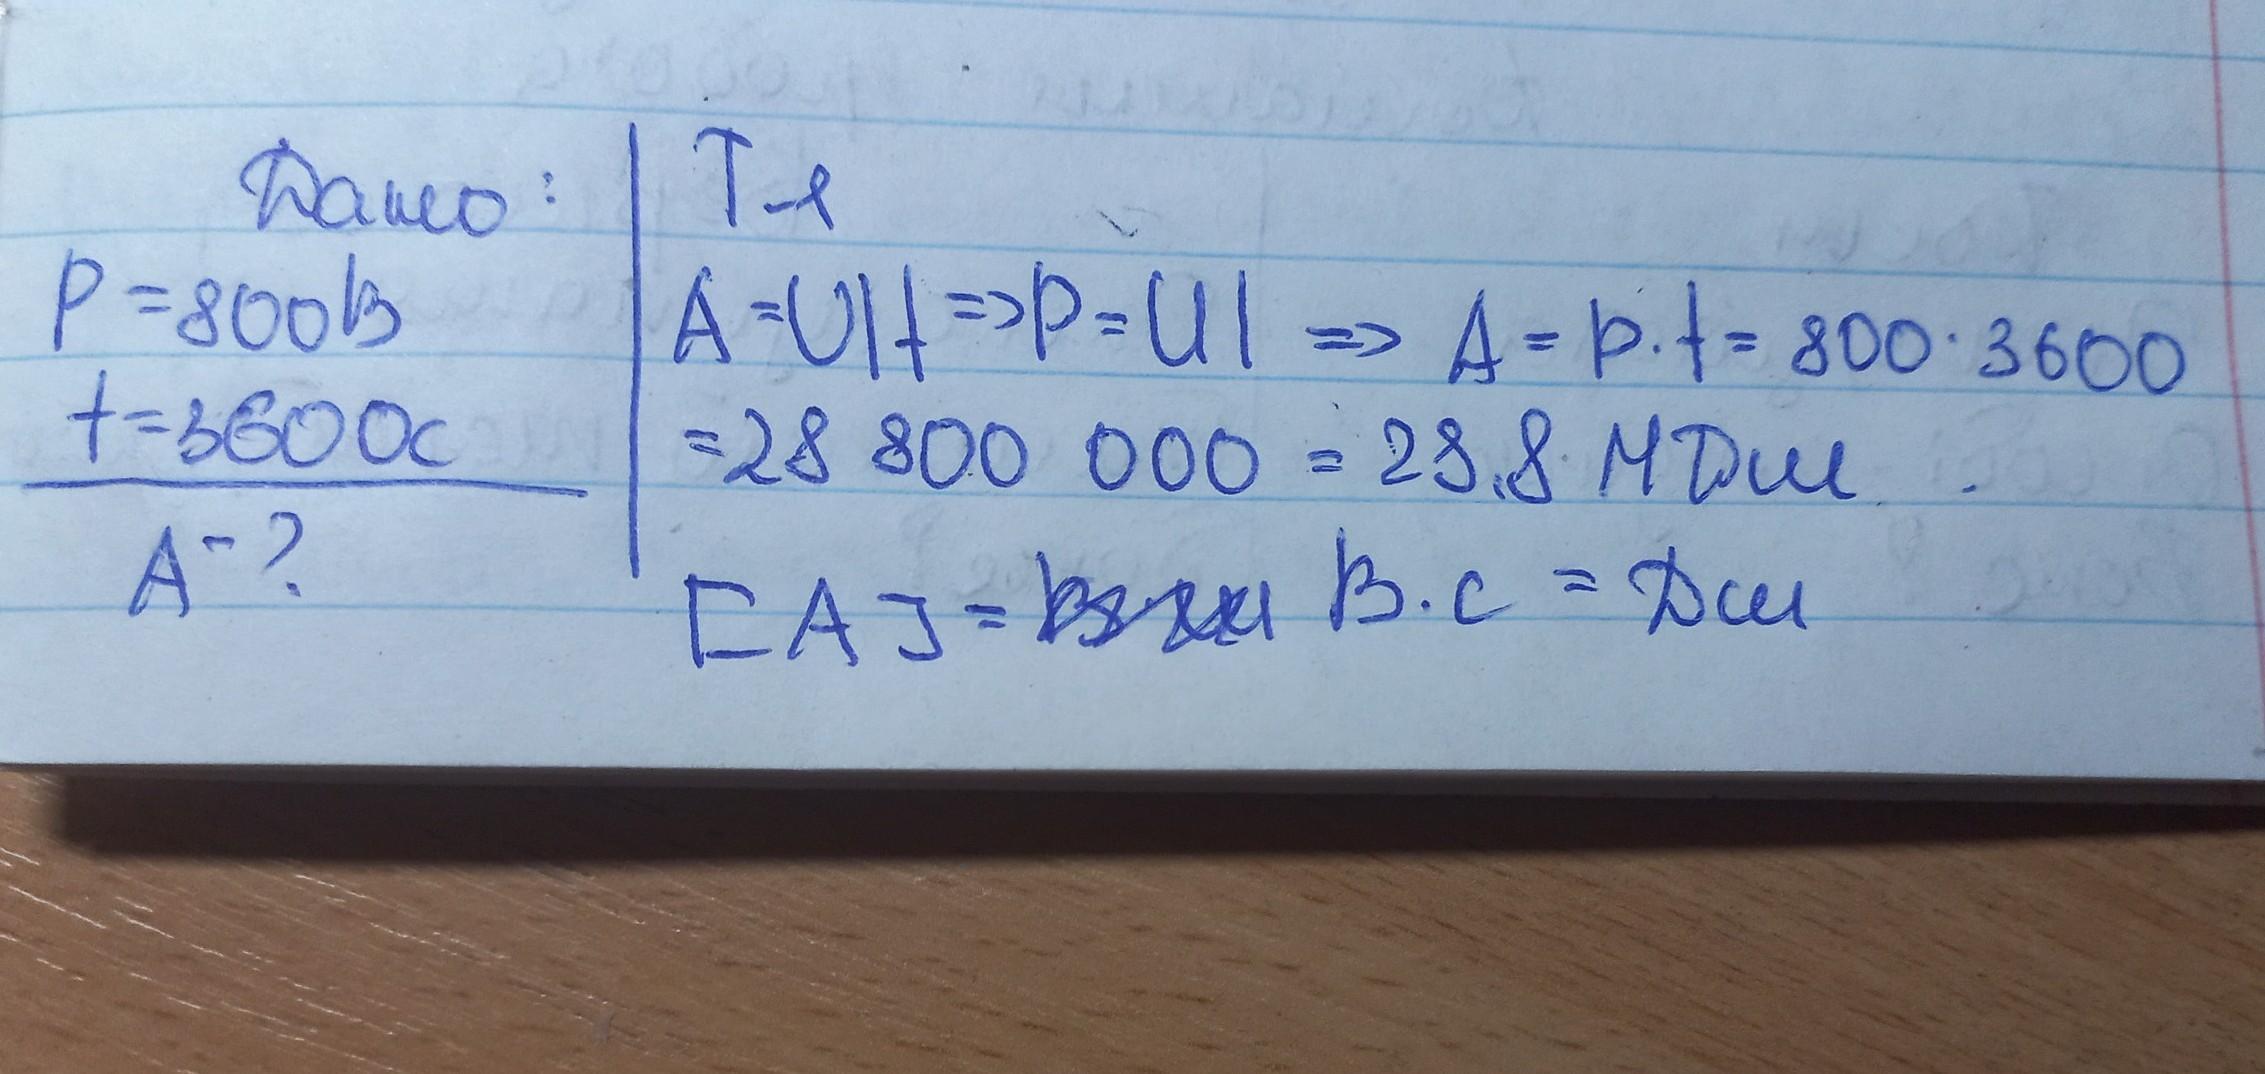 Дано:
P = 800В
t = 3600с
A - ?
Т-я
A = UIt => P = UI => A = P · t = 800 · 3600
= 28 800 000 = 28,8 МДж
[A] = В · с = Дж